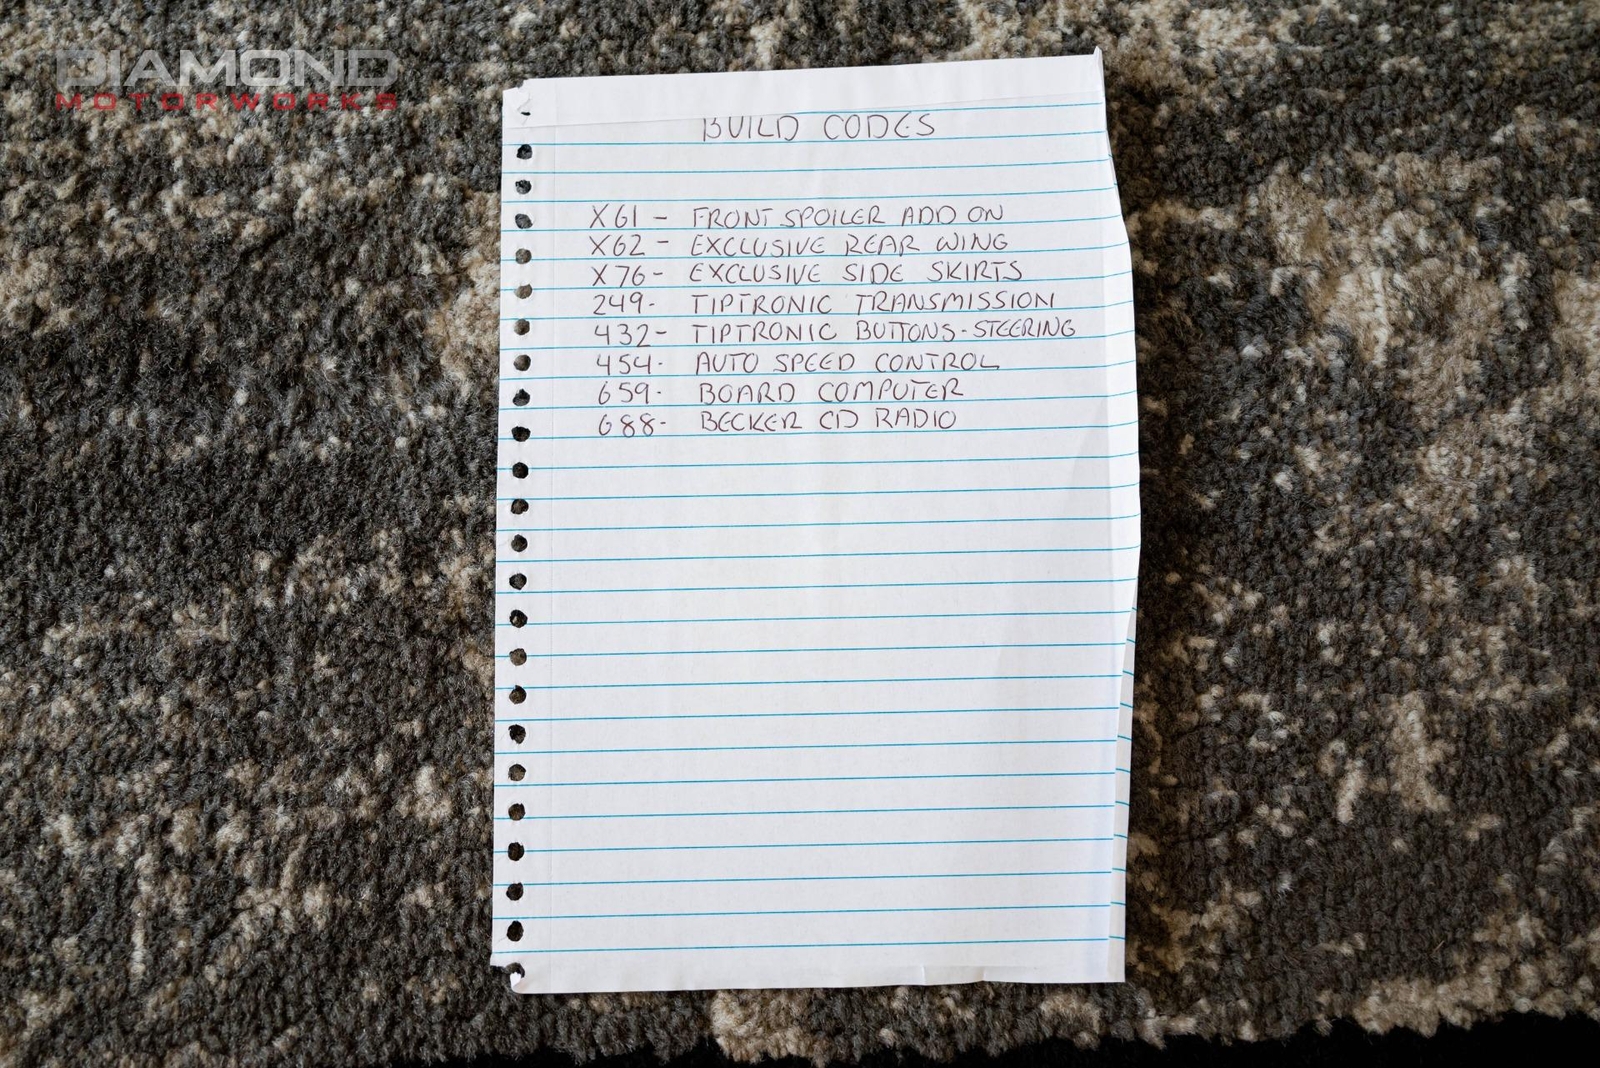 DIAMOND
MOTORWORKS
BUILD CODES
X61 - FRONT SPOILER ADD ON
X62 - EXCLUSIVE REAR WING
X76- EXCLUSIVE SIDE SKIRTS
249- TIPTRONIC TRANSMISSION
432- TIPTRONIC BUTTONS-STEERING
454- AUTO SPEED CONTROL
659- BOARD COMPUTER
688- BECKER CD RADIO